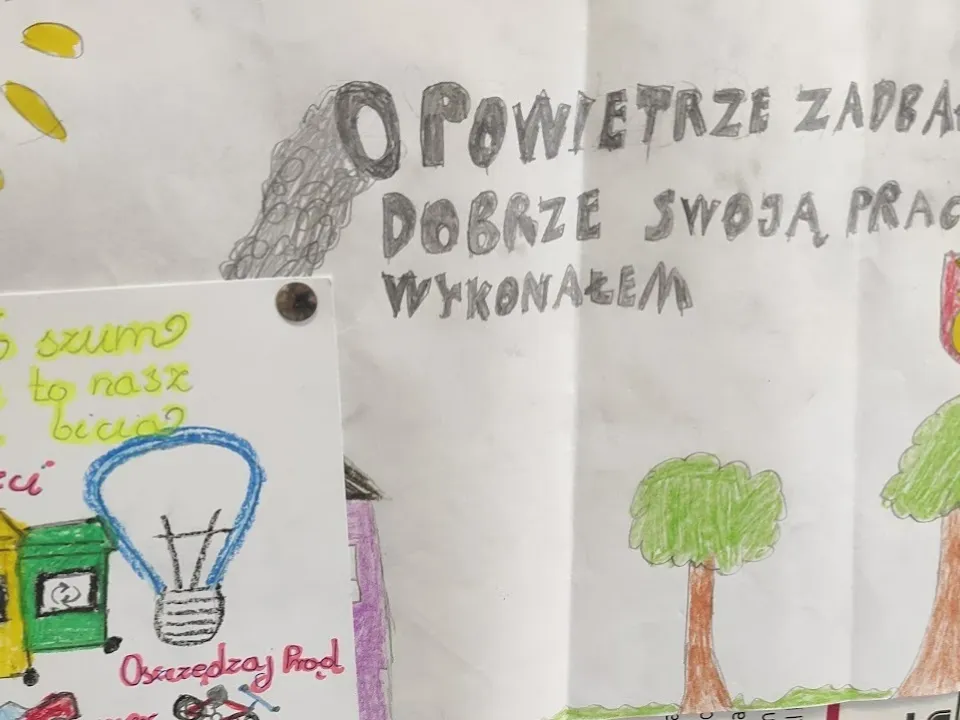 O POWIETRZE ZADBAŁ
DOBRZE SWOJĄ PRAC
WYKONAŁEM
szum?
to nasz
bicia?
eci
Oszczędzaj Prąd